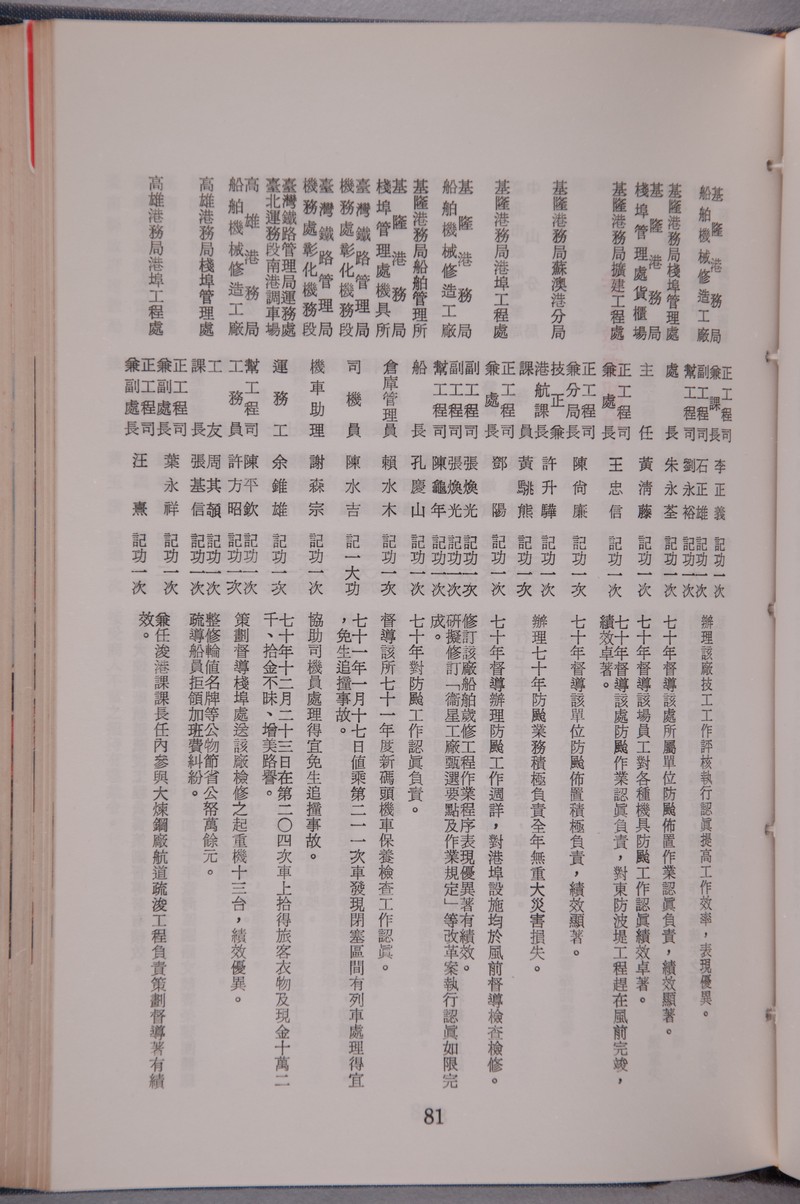 基隆港務局船舶機械修造工廠 正工程司兼課長 李正義 記功一次 辦理該廠技工工作評核執行認眞提高工作效率，表現優異。
副工程司 石正雄 記功一次
幫工程司 劉永裕 記功一次
基隆港務局棧埠管理處 處長 朱永荃 記功一次 七十年督導該處所屬單位防颱佈置作業認眞負責，績效顯著。
基隆港務局棧埠管理處貨櫃場 主任 黃淸藤 記功一次 七十年督導該場員工對各種機具防颱工作認眞績效卓著。
基隆港務局擴建工程處 正工程司兼處長 王忠信 記功一次 七十年督導該處防颱作業認眞負責，對東防波堤工程趕在風前完竣，
績效卓著。
基隆港務局蘇澳港分局 正工程司兼分局長 陳尙廉 記功一次 七十年督導該單位防颱佈置積極負責，績效顯著。
技正兼港航課長 許升驊 記功一次 辦理七十年防颱業務積極負責全年無重大災害損失。
課員 黃騉熊 記功一次
基隆港務局港埠工程處 正工程司兼處長 鄧陽 記功一次 七十年督導辦理防颱工作週詳，對港埠設施均於風前督導檢查檢修。
基隆港務局船舶機械修造工廠 副工程司 張煥光 記功二次 修訂該廠船舶歲修工程作業程序表現優異著有績效。
副工程司 張煥光 記功一次 硏擬修訂「衞星工廠甄選要點及作業規定」等改革案執行認眞如限完
幫工程司 陳龜年 記功一次 成。
基隆港務局船舶管理所 船長 孔慶山 記功一次 七十年對防颱工作認眞負責。
基隆港務局棧埠管理處機具所 倉庫管理員 賴水木 記功一次 督導該所七十一年度新碼頭機車保養檢查工作認眞。
臺灣鐵路管理局機務處彰化機務段 司機員 陳水吉 記一大功 七十一年一月十七日値乘第二一一次車發現閉塞區間有列車處理得宜
，免生追撞事故。
臺灣鐵路管理局機務處彰化機務段 機車助理 謝森宗 記功一次 協助司機員處理得宜免生追撞事故。
臺灣鐵路管理局運務處臺北運務段南港調車場 運務工 余錐雄 記功一次 七十年十二月二十三日在第二〇四次車上拾得旅客衣物及現金十萬二
千、拾金不昧、增美路譽。
高雄港務局船舶機械修造工廠 幫工程司 陳平欽 記功一次 策劃督導棧埠處送該廠檢修之起重機十三台，績效優異。
工務員 許方昭 記功一次
高雄港務局棧埠管理處 工友 周其頷 記功一次 整修輪値名牌等公物節省公帑萬餘元。
課長 張基信 記功一次 疏導船員拒領加班費糾紛。
高雄港務局港埠工程處 正工程司兼處長 葉永祥 記功一次 兼任浚港課課長任內參與大煉鋼廠航道疏浚工程負責策劃督導著有績
副工程司兼副處長 汪熹 記功一次 效。
81